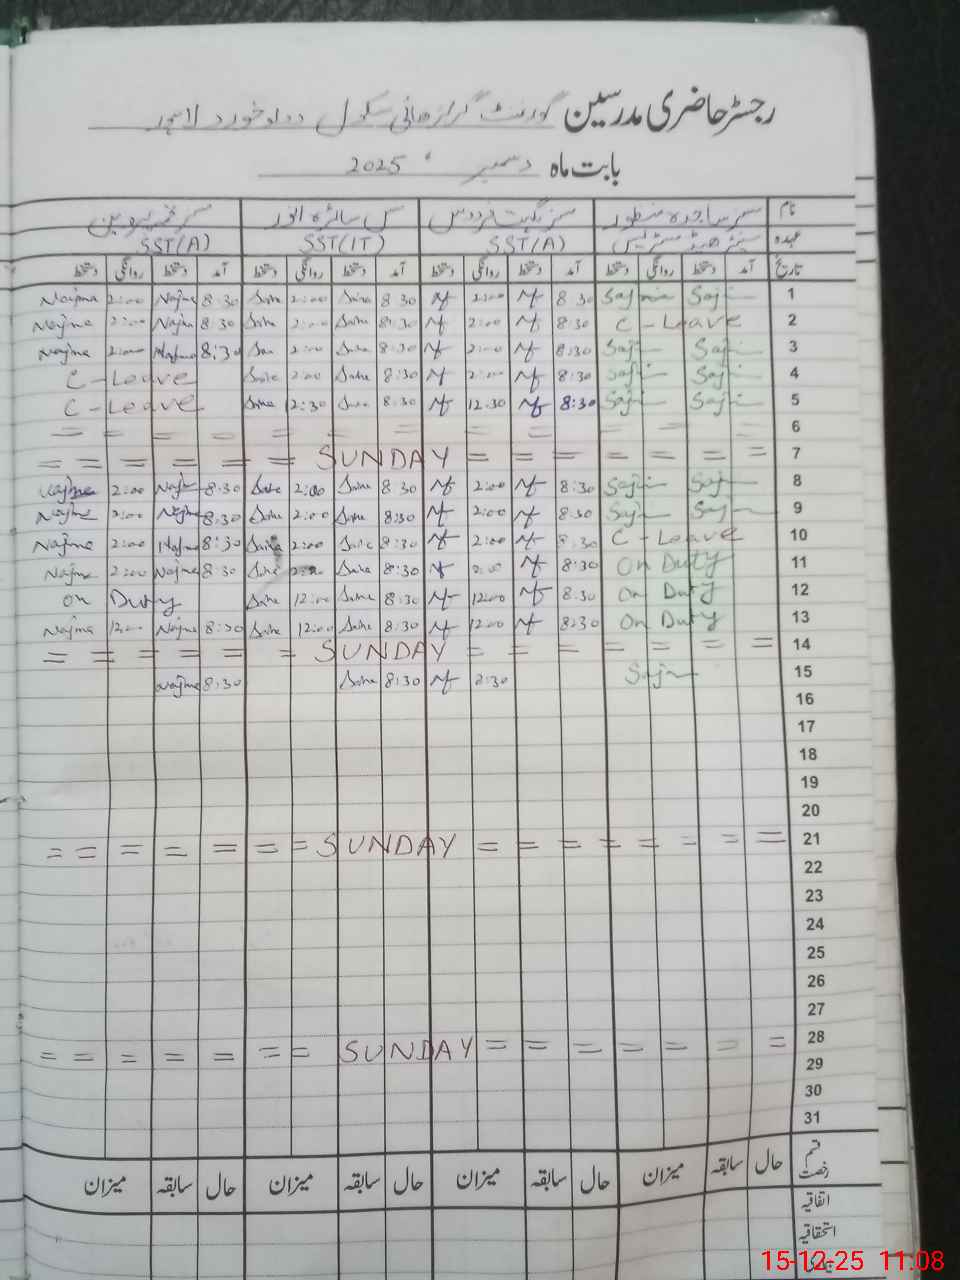 رجسٹر حاضری مدرسین گورنمنٹ گرلز ہائی سکول دداوخورد لاہور
بابت ماہ دسمبر 2025
نام مسز ساجدہ منظور مسز نگہت فردوس مس سائرہ انور مسز نجمہ پروین
عہدہ سینئر ھیڈ مسٹریس SST(A) SST(IT) SST(A)
تاریخ آمد دستخط روانگی دستخط آمد دستخط روانگی دستخط آمد دستخط روانگی دستخط آمد دستخط روانگی دستخط
Najma 2:00 Najma 8:30 Saira 2:00 Saira 8:30 Nf 2:00 Nf 8:30 1
Najma 2:00 Najma 8:30 Saira 2:00 Saira 8:30 Nf 2:00 Nf 8:30 C-Leave 2
Najma 2:00 Najma 8:30 2:00 Saira 8:30 Nf 2:00 Nf 8:30 3
C-Leave Saira 2:00 Saira 8:30 Nf 2:00 Nf 8:30 4
C-Leave Saira 12:30 Saira 8:30 Nf 12:30 Nf 8:30 5
= = = = = = = = = = = 6
= = = = = = SUNDAY = = = = = = = 7
Najma 2:00 Najma 8:30 Saira 2:00 Saira 8:30 Nf 2:00 Nf 8:30 8
Najma 2:00 Najma 8:30 Saira 2:00 Saira 8:30 Nf 2:00 Nf 8:30 9
Najma 2:00 Najma 8:30 Saira 2:00 Saira 8:30 Nf 2:00 Nf 8:30 C-Leave 10
Najma 2:00 Najma 8:30 Saira Saira 8:30 Nf 2:00 Nf 8:30 On Duty 11
On Duty Saira 12:00 Saira 8:30 Nf 12:00 Nf 8:30 On Duty 12
Najma 12:00 Najma 8:30 Saira 12:00 Saira 8:30 Nf 12:00 Nf 8:30 On Duty 13
= = = = = = SUNDAY = = = = = = = 14
Najma 8:30 Saira 8:30 Nf 8:30 15
16
17
18
19
20
= = = = = = = SUNDAY = = = = = = = = 21
22
23
24
25
26
27
= = = = = = = SUNDAY = = = = = = = 28
29
30
31
قسم رخصت حال سابقہ میزان حال سابقہ میزان حال سابقہ میزان حال سابقہ میزان
اتفاقیہ
استحقاقیہ
15-12-25 11:08